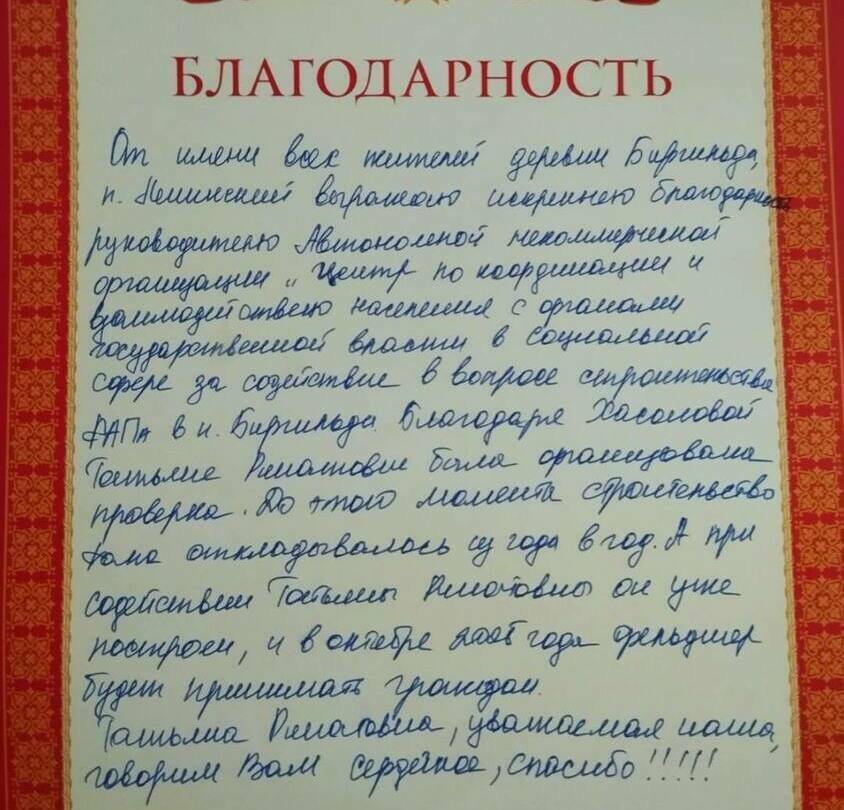 БЛАГОДАРНОСТЬ
От имени всех жителей деревни Биргильда,
п. выражаю искреннею благодарность
руководителю Автономной некоммерческой
организации „Центр по координации и
взаимодействию населения с органами
государственной власти в социальной
сфере за содействие в вопросе строительства
ФАПа в п. Биргильда. Благодаря Хасановой
Татьяне Ринатовне была организована
проверка. До этого момента строительство
откладывалось из года в год. А при
содействии Татьяны Ринатовны он уже
построен, и в октябре 2025 года фельдшер
будет принимать граждан.
Татьяна Ринатовна, уважаемая наша,
говорим Вам сердечное, спасибо!!!!!